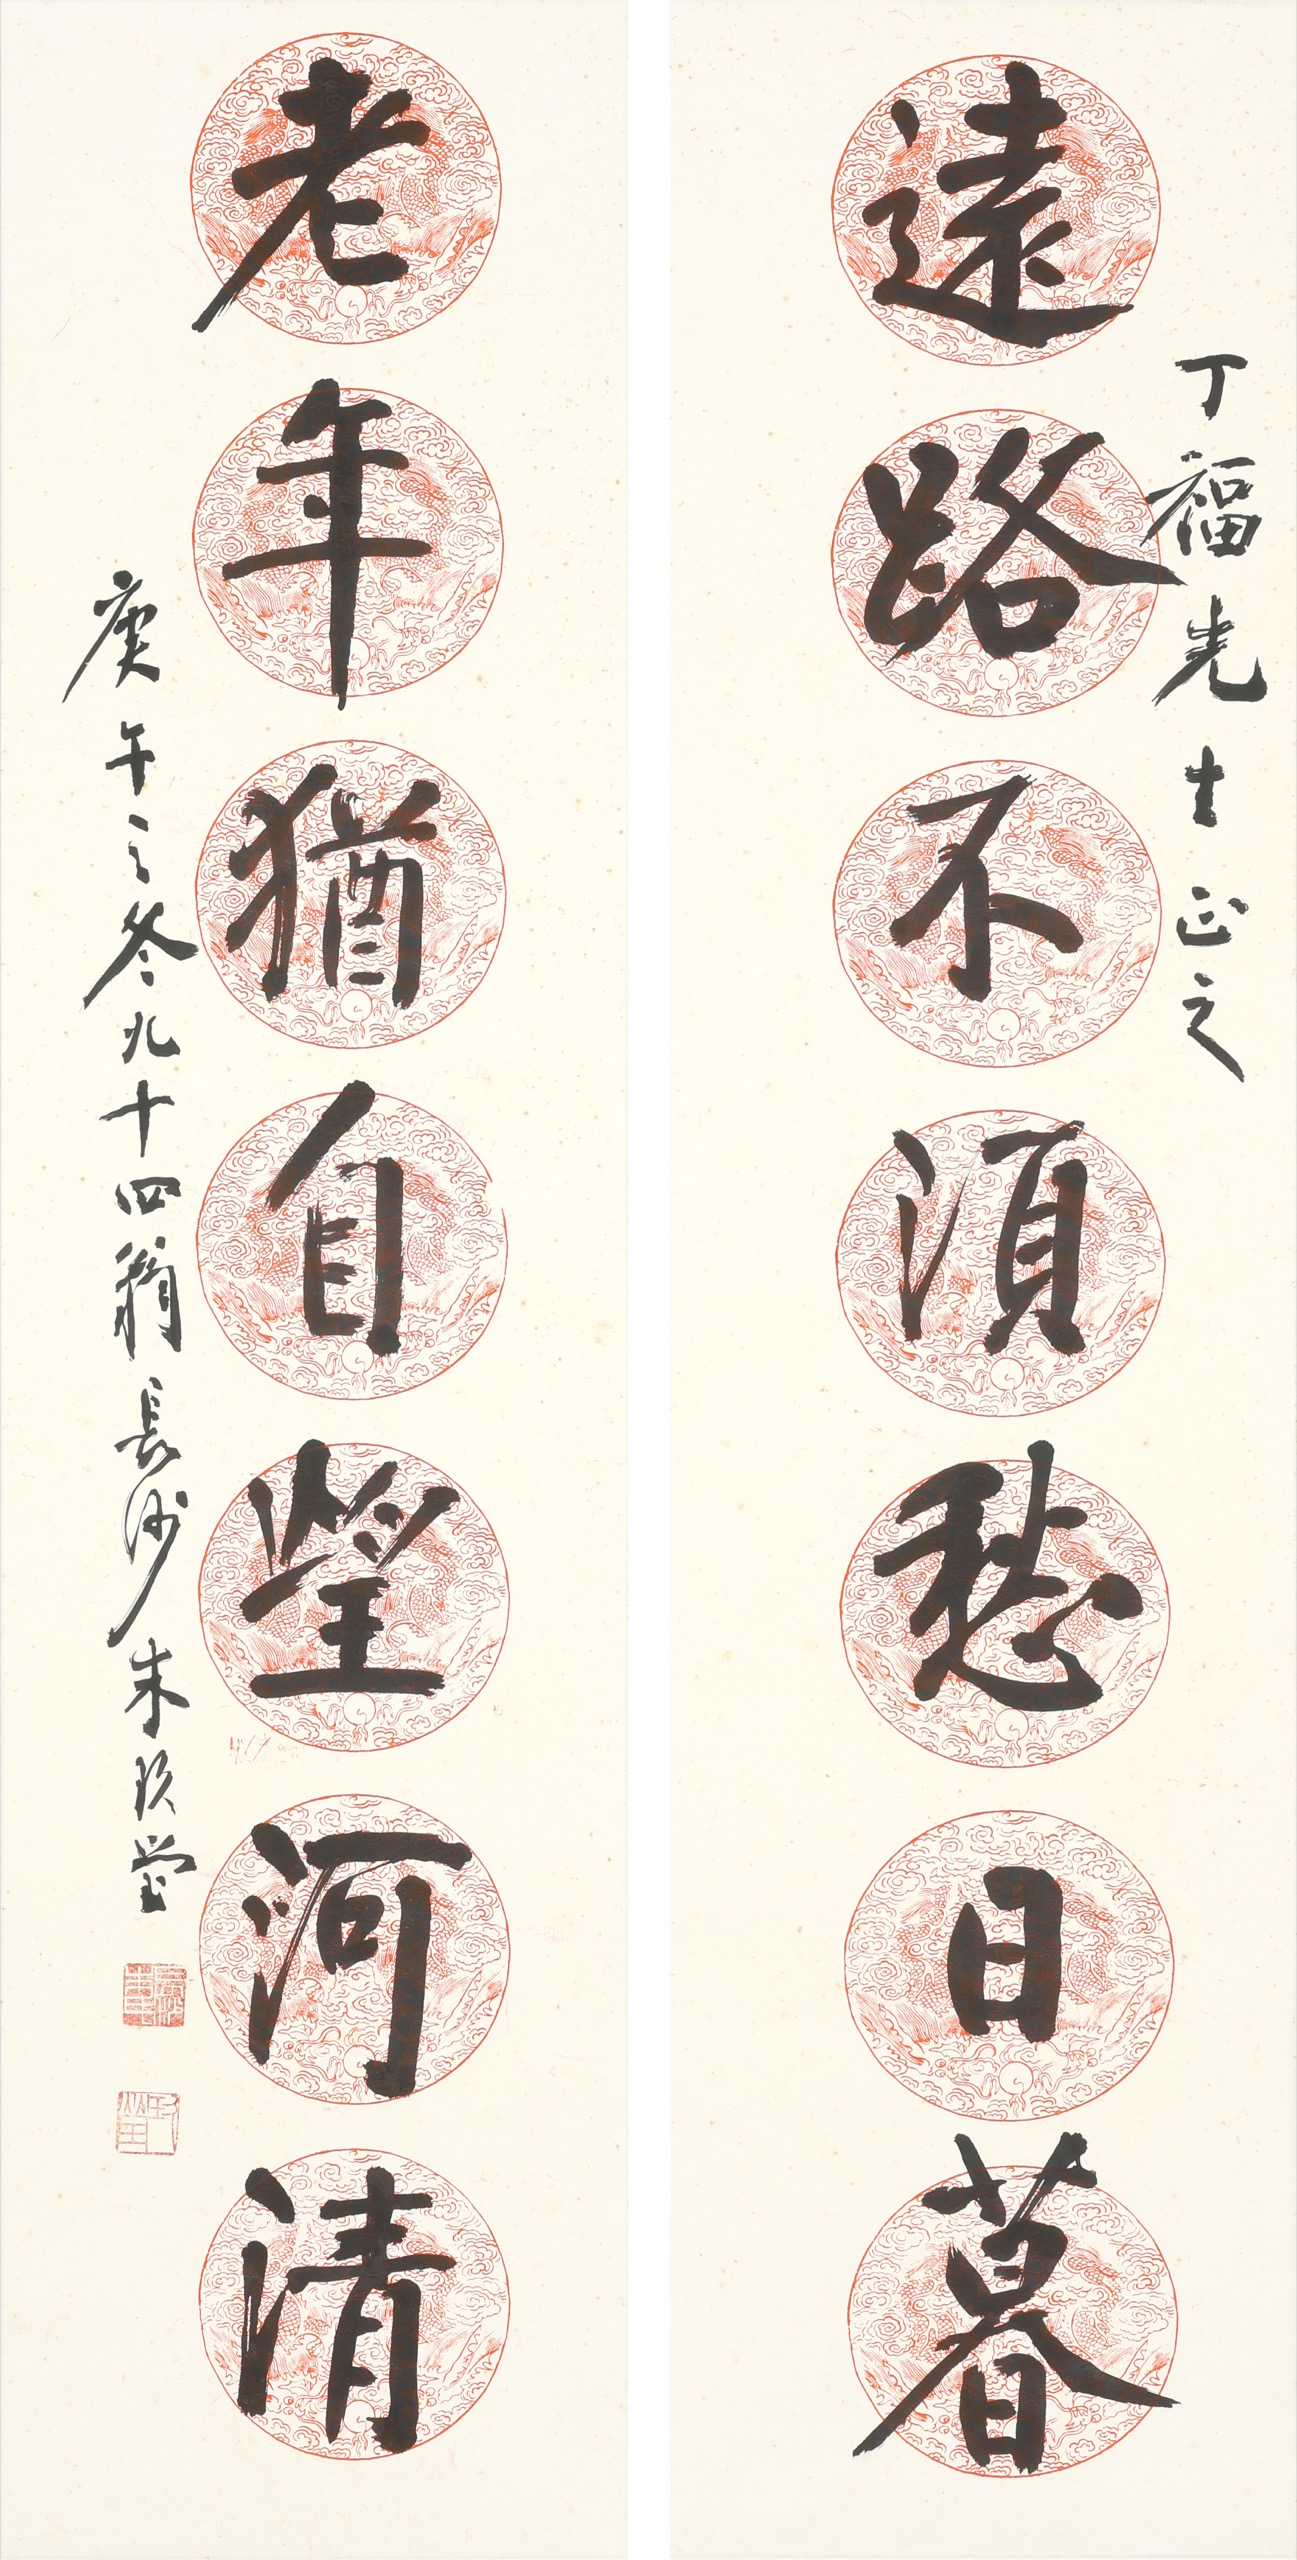 丁福先生正之
遠路不須愁日暮
老年猶自望河清
庚午之冬九十四翁長沙朱玖瑩